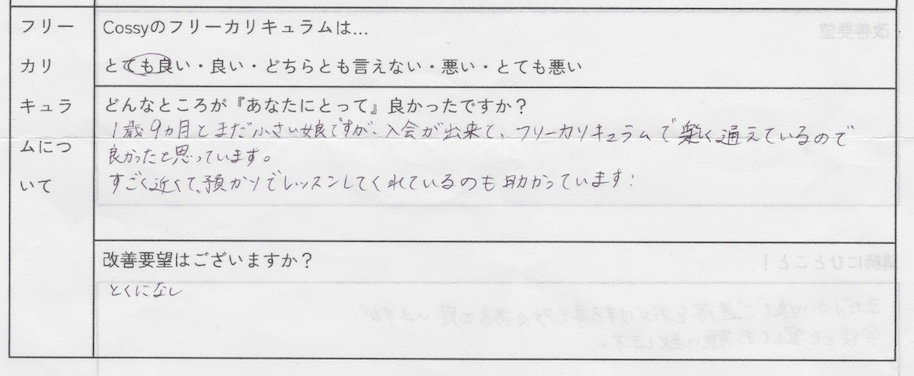 フリー
カリ
キュラ
ムにつ
いて
Cossyのフリーカリキュラムは...
とても良い・良い・どちらとも言えない・悪い・とても悪い
どんなところが『あなたにとって』良かったですか？
1歳9ヵ月とまだ小さい娘ですが、入会が出来て、フリーカリキュラムで楽しく通えているので
良かったと思っています。
すごく近くて、預かりでレッスンしてくれているのも助かっています！
改善要望はございますか？
とくになし
改善要望
講師にひとこと！